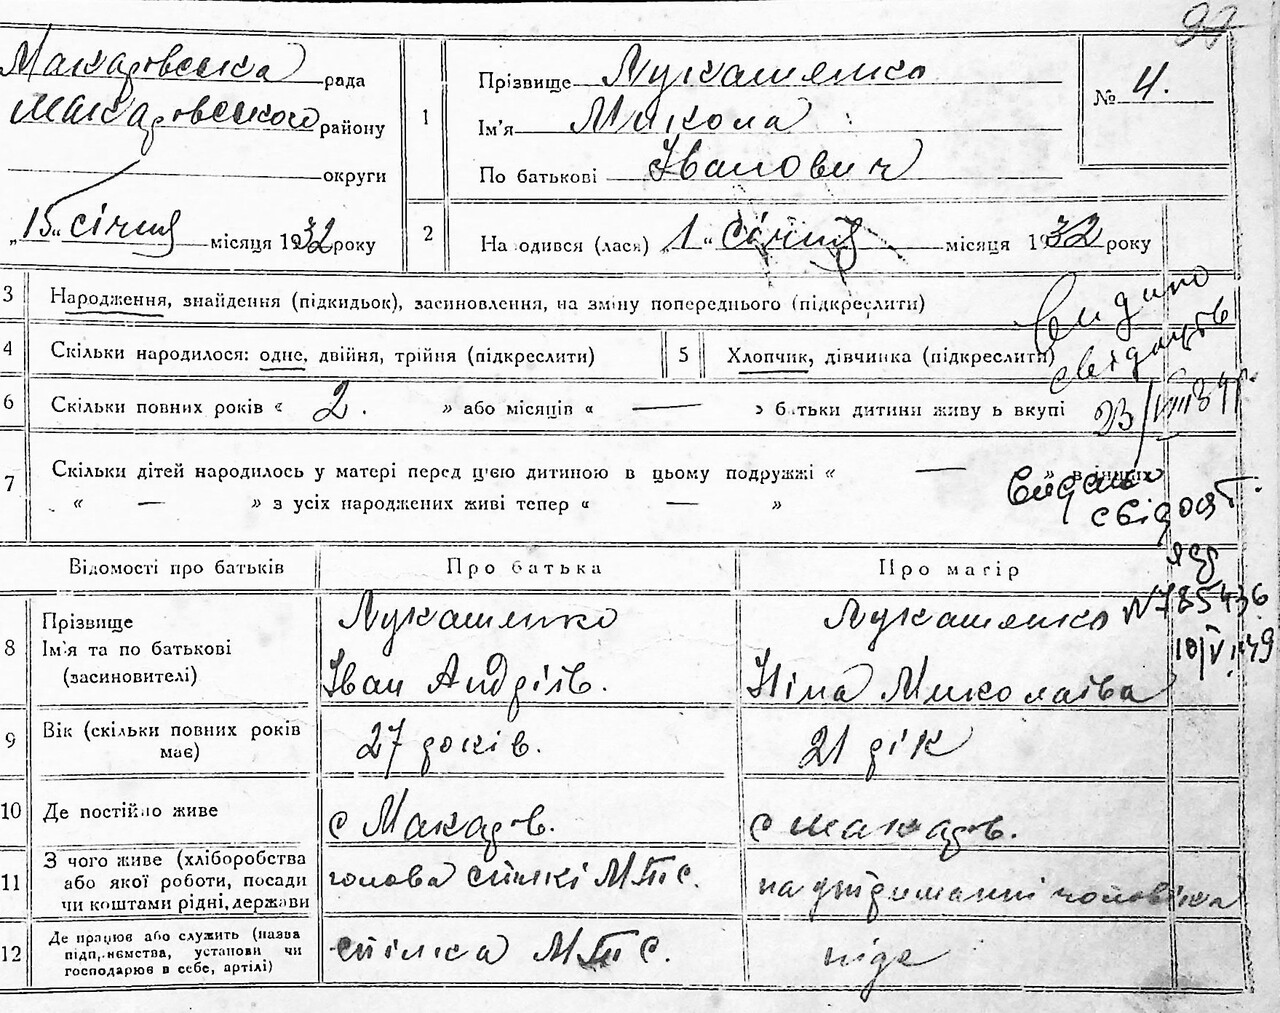 99
Макаровська рада
Макаровського району
округи
„15“ січня місяця 1932 року
1
Прізвище Лукашенко
Ім'я Микола
По батькові Іванович
№ 4.
2
Народився (лася) „1“ січня місяця 1932 року
3 Народження, знайдення (підкидьок), засиновлення, на зміну попереднього (підкреслити)
4 Скільки народилося: одне, двійня, трійня (підкреслити)
5 Хлопчик, дівчинка (підкреслити)
6 Скільки повних років « 2. » або місяців « — » батьки дитини живуть вкупі
7 Скільки дітей народилось у матері перед цією дитиною в цьому подружжі « — » в інших
« — » з усіх народжених живі тепер « — »
Видано
свідоцтв
23/VIII 34 р.
Видано
свідоцт.
N 785436
10/VI 49
Відомості про батьків
Про батька
Про матір
8 Прізвище
Ім'я та по батькові
(засиновителі)
Лукашенко
Іван Андріїв.
Лукашенко
Ніна Миколаївa
9 Вік (скільки повних років
має)
27 років.
21 рік
10 Де постійно живе
с Макарів.
с Макарів.
11 З чого живе (хліборобства
або якої роботи, посади
чи коштами рідні, держави
голова спілкі МТС.
на утріманні чоловіка
12 Де працює або служить (назва
підприємства, установи чи
господарює в себе, артілі)
спілка МТС.
ніде